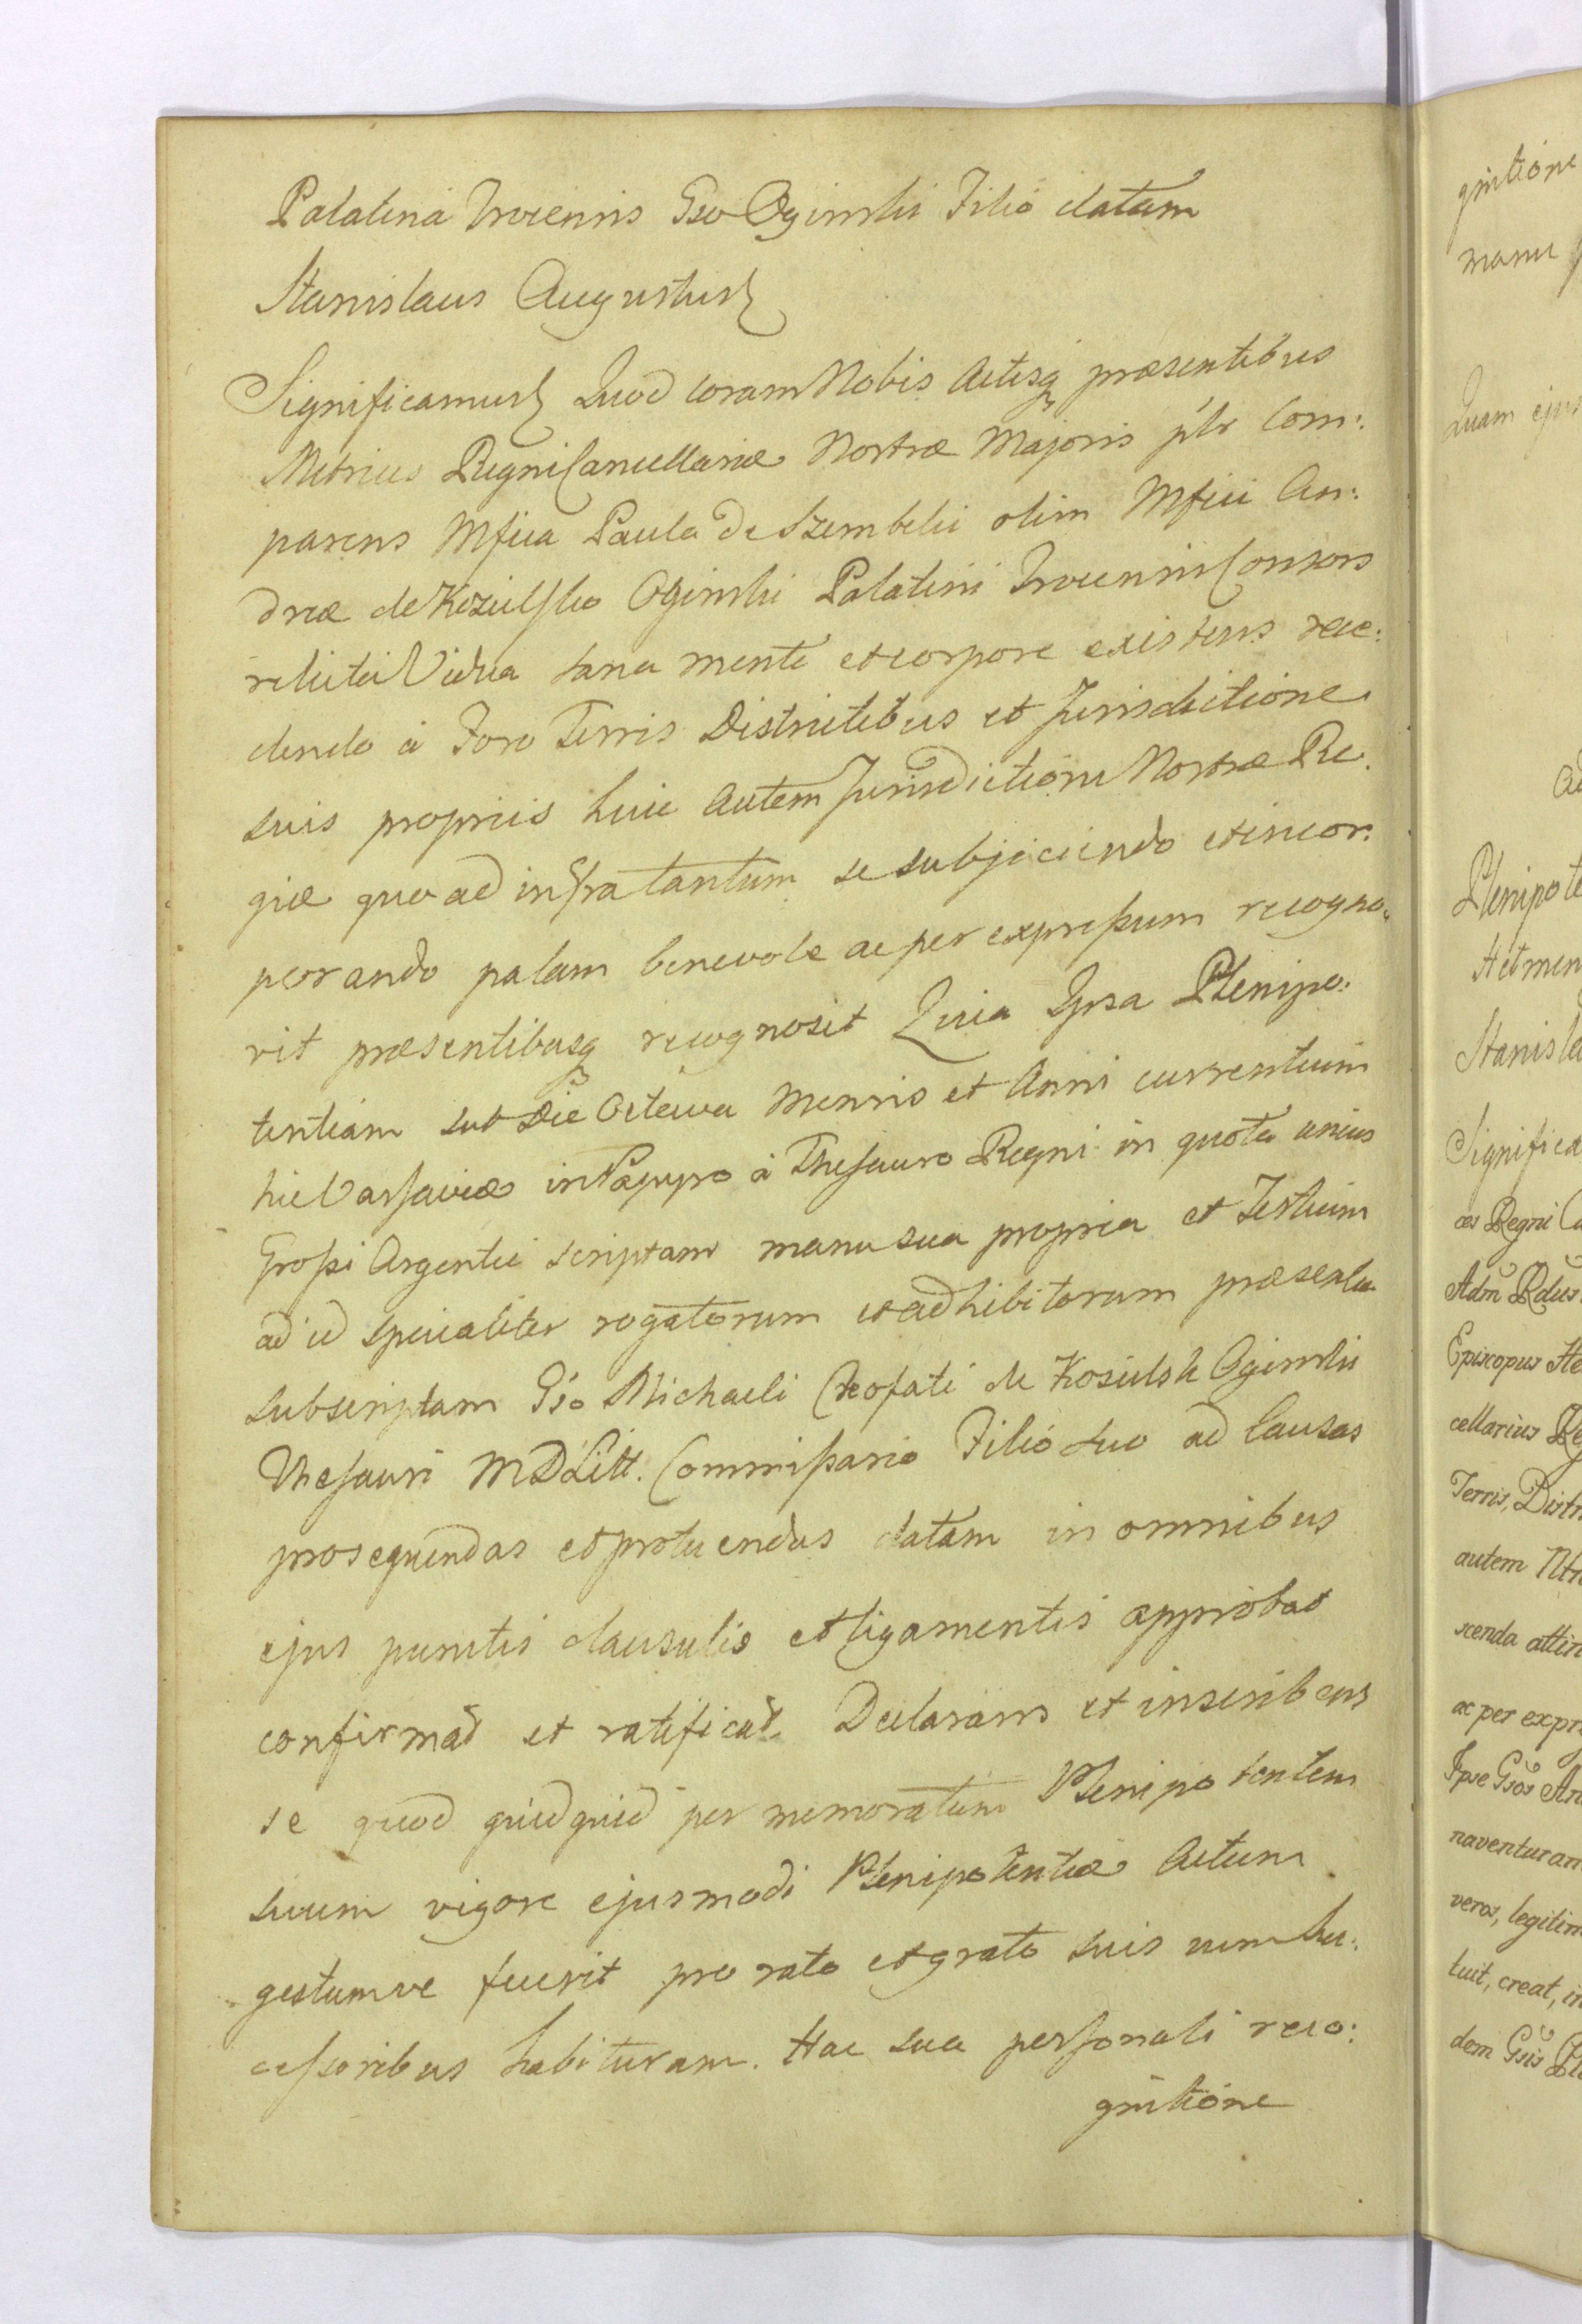 Palatina Trocensis Gso Oginski Filio datam
Stanislaus Augustus
Significamus Quod coram Nobis Actisq praesentibus
Metrices Regni Cancellariae Nostrae Majoris plr Com:
parens Mfica Paula de Szembeki olim Mfici An:
dreae de Kozielsko Oginski Palatini Trocensis Consors
relicta Vidua sana mente et corpore existens rece:
dendo à Foro Terris Districtibus et Jurisdictione
suis propriis huic autem Jurisdictioni Nostrae Re:
giae quo ad infra tantum se subjiciendo et incor:
porando palam benevole ac per expressum recogno:
vit praesentibusq recognosit Quia Ipsa Plenipo:
tentiam sub Die Octava Mensis et Anni currentium
hic Varsaviae in Papyro à Thesauro Regni in quota unius
Grossi Argentei scriptam manu sua propria et Testium
ad id specialiter rogatorum et adhibitorum praesentia
subscriptam Gso Michaeli Cleofati de Kosielsk Oginski
Thesauri MDLitt. Commissario Filio suo ad Causas
prosequendas et protuendas datam in omnibus
ejus punctis clausulis et ligamentis approbat
confirmat et ratificat. Declarans et inscribens
se quod quidquid per memoratum Plenipotentem
suum vigore ejusmodi Plenipotentiae Actum
gestumve fuerit pro rato et grato suis cum Suc:
cessoribus habituram. Hac sua personali reco:
gnitione
gnitione
manu
Quam ejus
Plenipote
Hetmen
Stanisla
Significa
ces Regni Ca
Adm Rdus
Episcopus He
cellarius Re
Terris, Distr
autem Ntr
scenda attin
ac per expre
Ipse Gsos An
naventuram
veros, legitim
tuit, creat, in
dem Gsis Pl